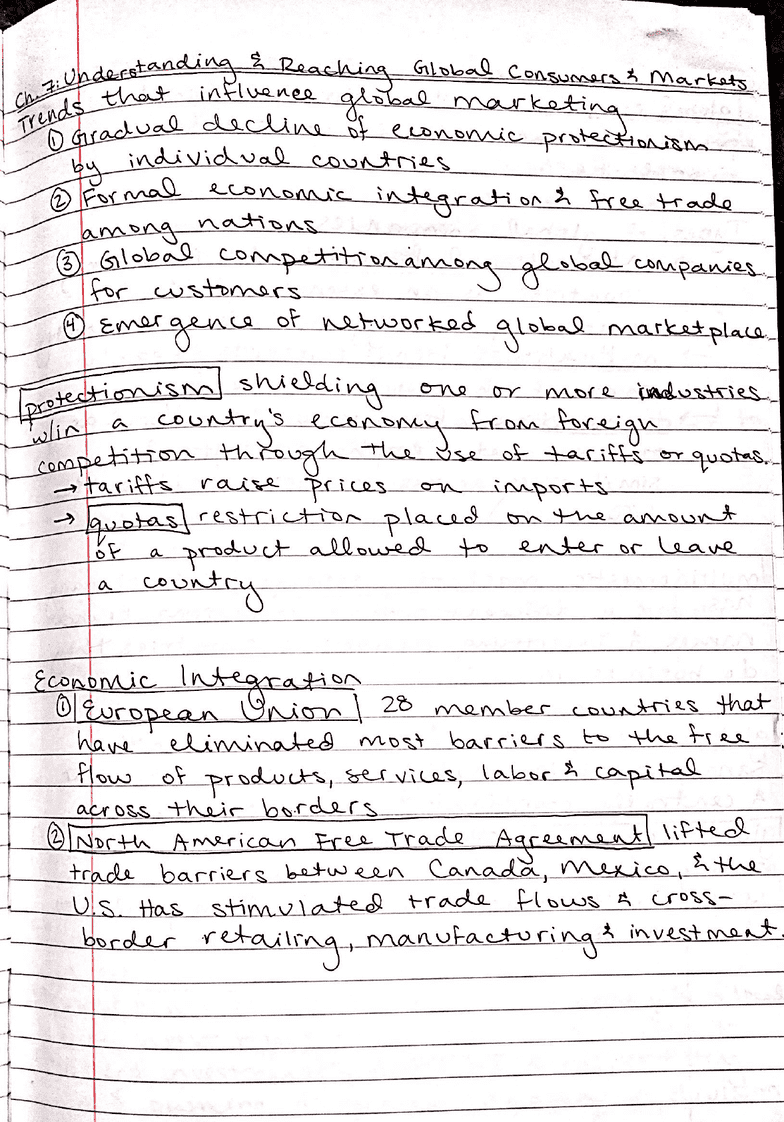 Ch. 7: Understanding & Reaching Global Consumers & Markets
Trends that influence global marketing
① Gradual decline of economic protectionism
by individual countries
② Formal economic integration & free trade
among nations
③ Global competition among global companies
for customers
④ Emergence of networked global marketplace
protectionism shielding one or more industries
w/in a country's economy from foreign
competition through the use of tariffs or quotas.
→ tariffs raise prices on imports
→ quotas restriction placed on the amount
of a product allowed to enter or leave
a country
Economic Integration
① European Union 28 member countries that
have eliminated most barriers to the free
flow of products, services, labor & capital
across their borders
② North American Free Trade Agreement lifted
trade barriers between Canada, Mexico, & the
U.S. Has stimulated trade flows & cross-
border retailing, manufacturing & investment.